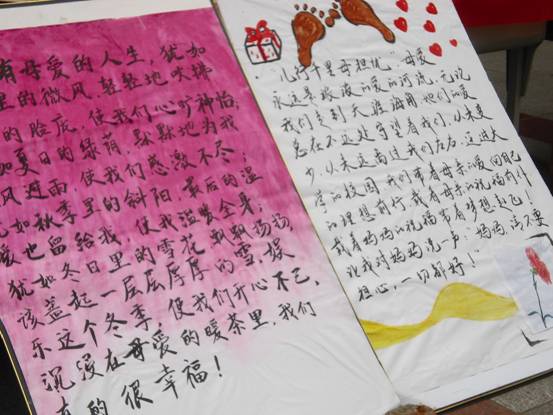 有母爱的人生，犹如
里的微风，轻轻地吹拂
的脸庞，使我们心旷神怡，
如夏日的绿荫，默默地为我
风遮雨，使我们感激不尽；
如秋季里的斜阳，最后的温
爱也留给我，使我温暖全身；
犹如冬日里的雪花，飘飘扬扬，
该盖起一层层厚厚的雪，娱
乐这个冬季，使我们开心不已，
沉浸在母爱的暖茶里，我们
的很幸福！
儿行千里母担忧"母爱
永远是滚滚的爱的河流，无论
我们走到天涯海角，她们的爱
总在不远处守望着我们，从未更
少，从未远离过我们左右，迈进大
学的校园，我们带着母亲的爱向自己
的理想前行，载着母亲的祝福前行
载着妈妈的祝福带着梦想起飞！
让我对妈妈说一声"妈妈，请不要
担心，一切都好！